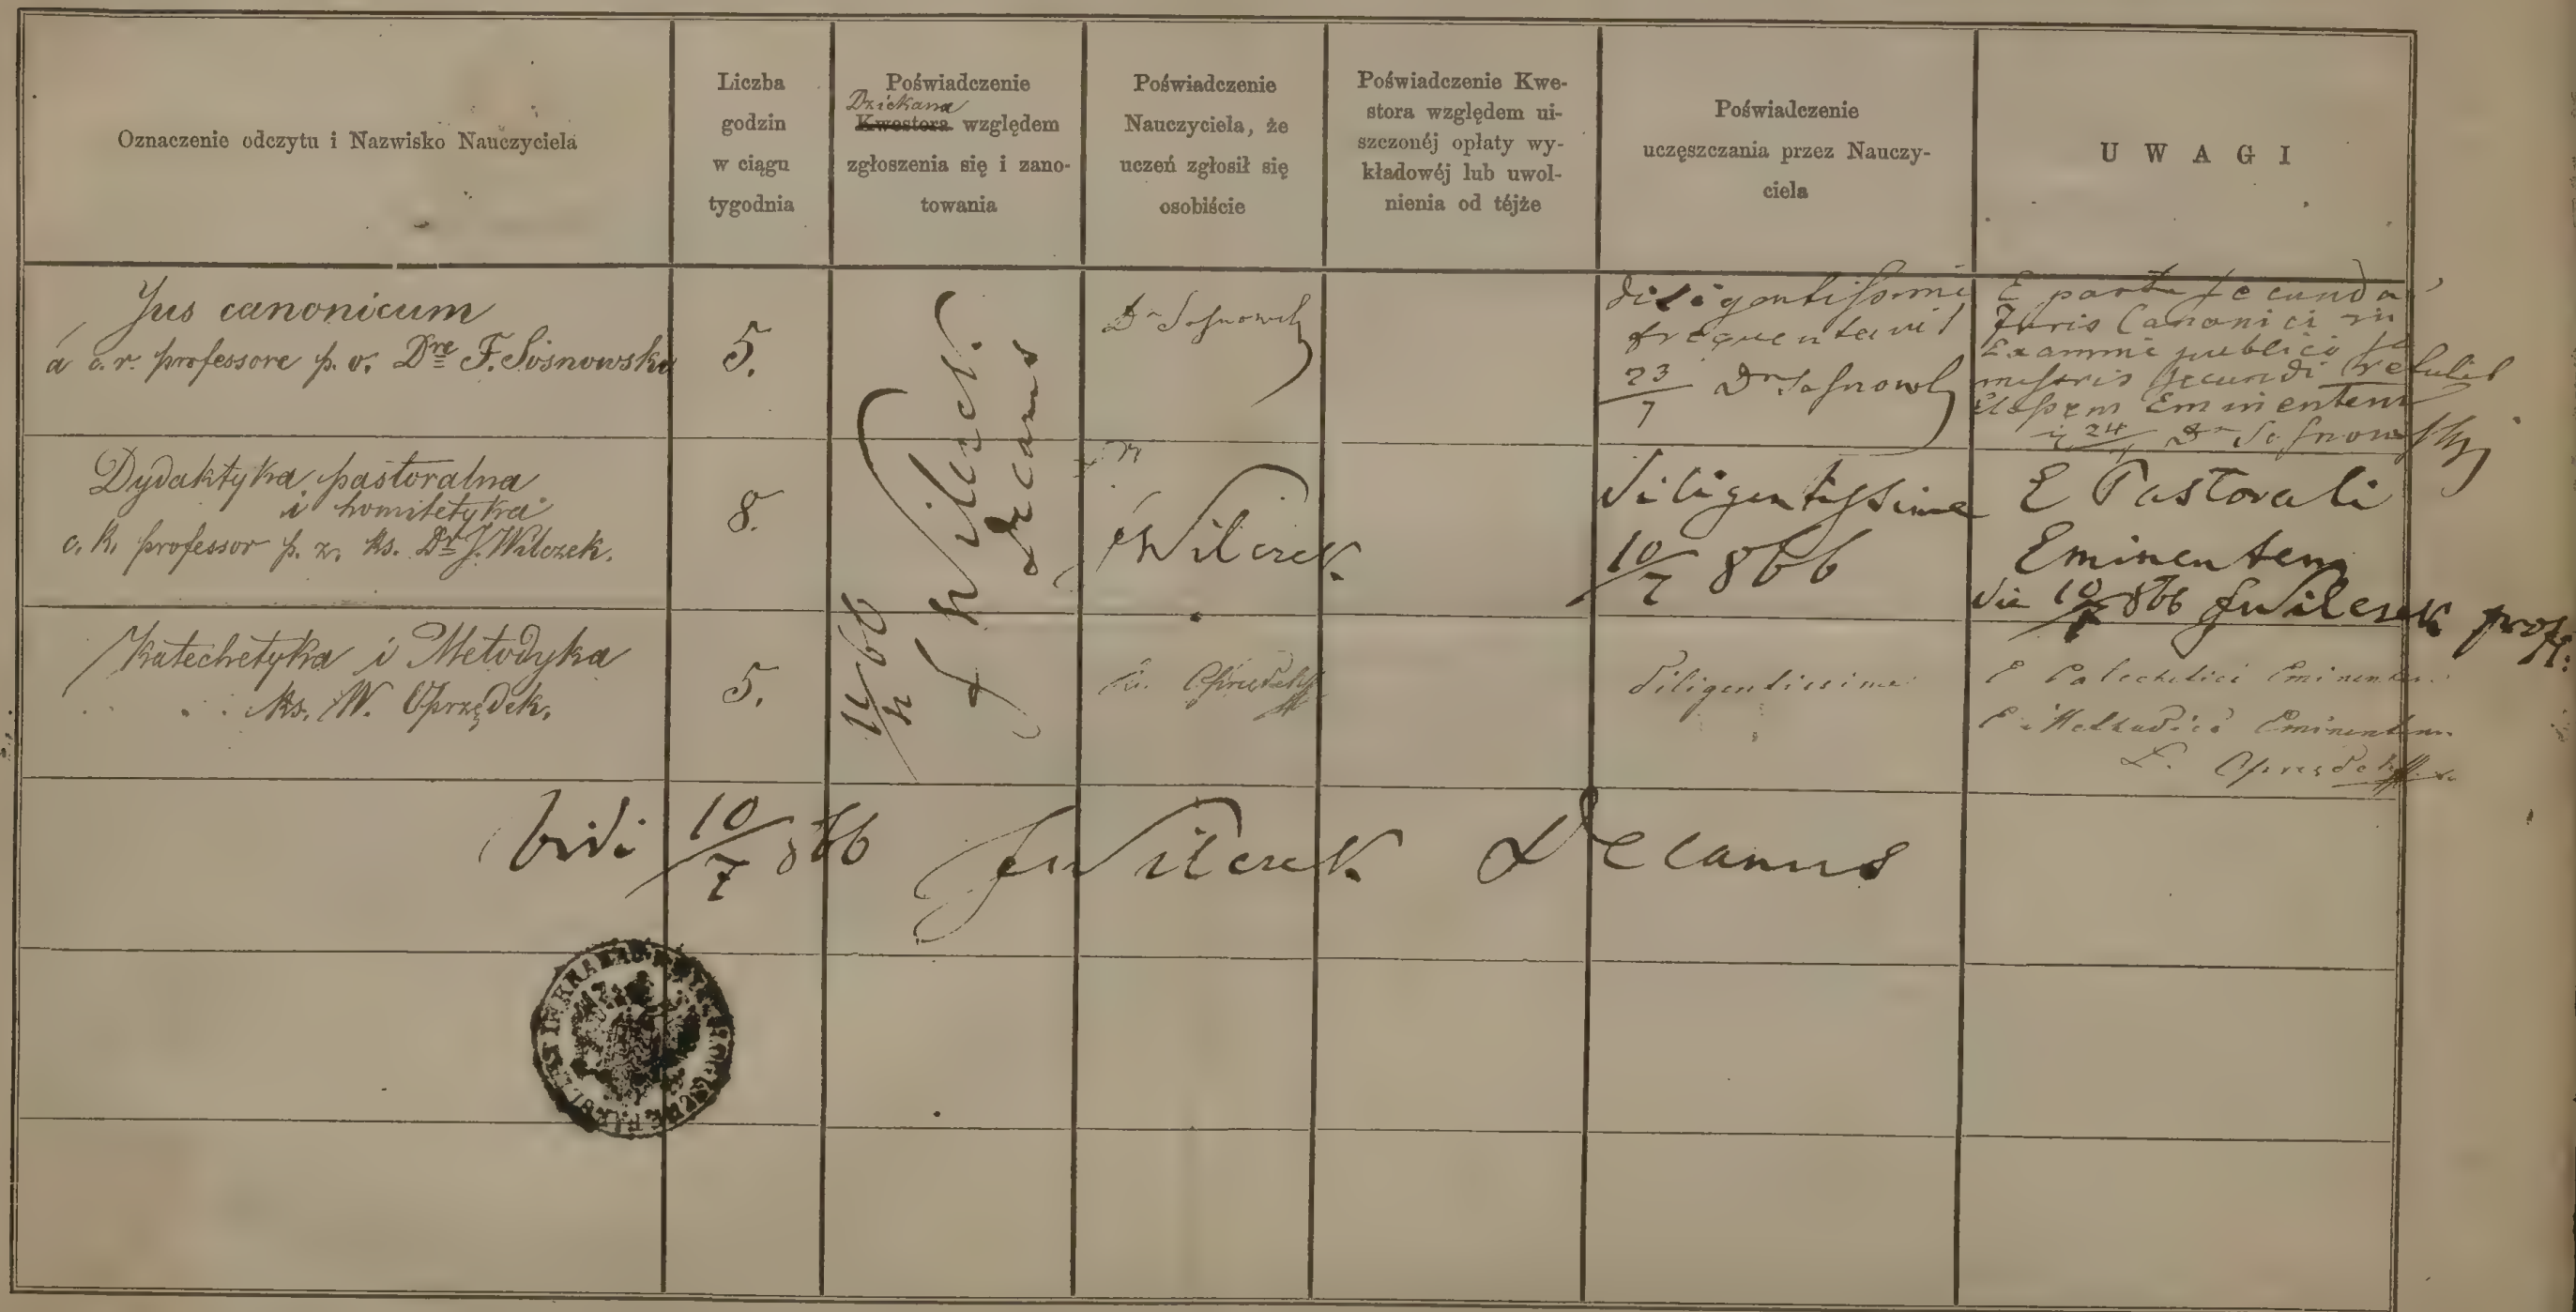 Oznaczenie odczytu i Nazwisko Nauczyciela
Liczba
godzin
w ciągu
tygodnia
Poświadczenie
Dziekana
Kwestora względem
zgłoszenia się i zano-
towania
Poświadczenie
Nauczyciela, że
uczeń zgłosił się
osobiście
Poświadczenie Kwe-
stora względem ui-
szczonéj opłaty wy-
kładowéj lub uwol-
nienia od téjże
Poświadczenie
uczęszczania przez Nauczy-
ciela
UWAGI
Jus canonicum
á c. r. professore p. o. Dre F. Sosnowski
5.
Dr Sosnowski
diligentissime
frequentavit
23/7 Dr Sosnowski
E parte secunda
Juris Canonici in
Examine publico se
mestris secundi retulit
classem Eminentem
24 Dr Sosnowski
Dydaktyka pastoralna
i homiletyka
c. k. professor p. z. ks. Dr J. Wilczek.
8.
JWilczek
Decanus
JWilczek
diligentissime
10/7 866
E Pastorali
Eminentem
die 10/7 866 JWilczek prof.
Katechetyka i Metodyka
ks. W. Oprzędek.
5.
Oprzędek
diligentissime
E Catechetici Eminentem
E Methodici Eminentem
Oprzędek
Vidi 10/7 866 JWilczek Decanus